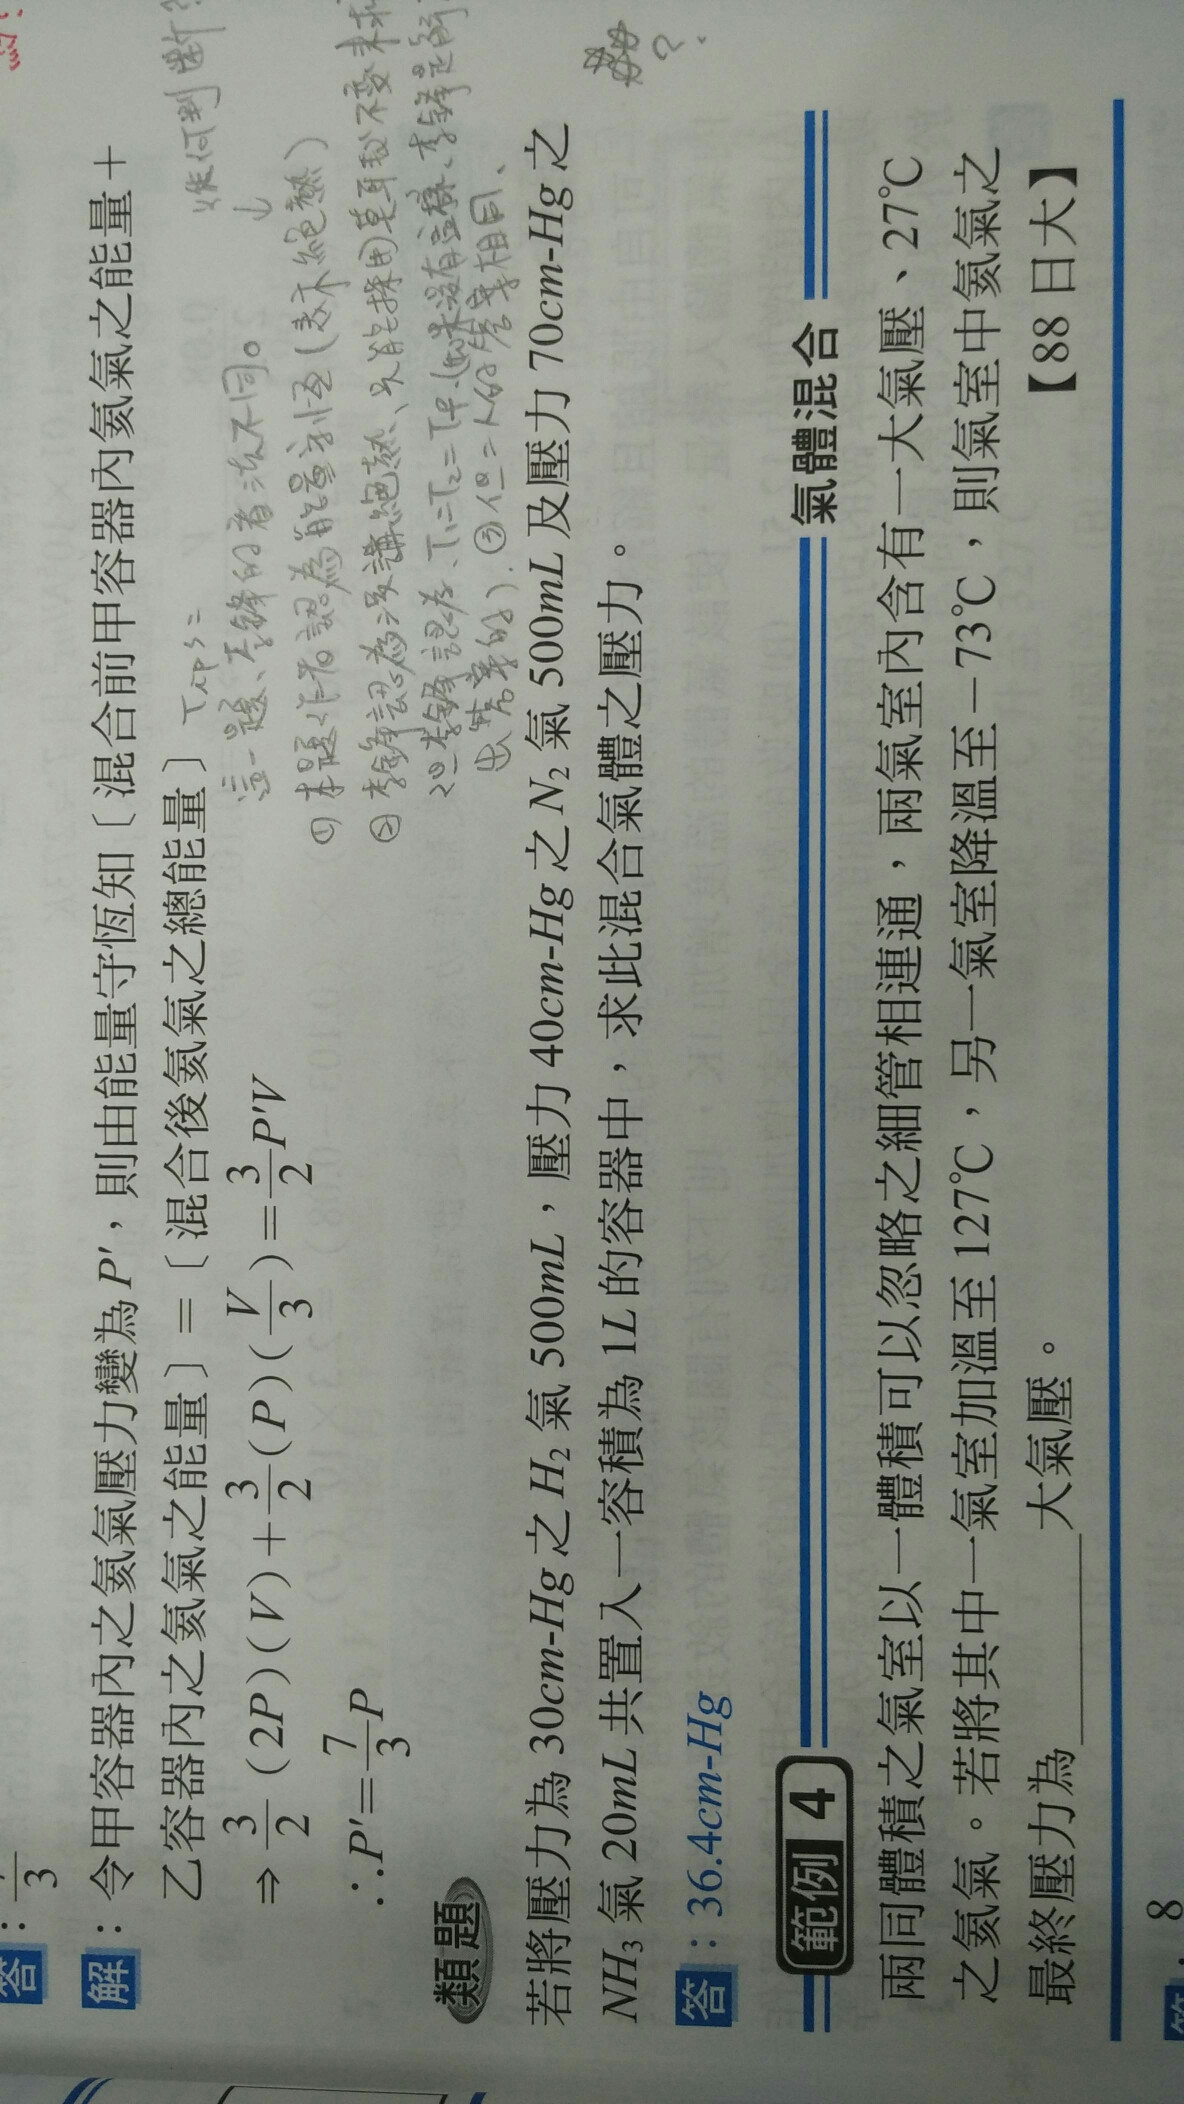 答：
3
解：令甲容器內之氦氣壓力變為 P′，則由能量守恆知〔混合前甲容器內氦氣之能量＋
乙容器內之氦氣之能量〕＝〔混合後氦氣之總能量〕
⇒ 3/2 (2P)(V)＋3/2 (P)(V/3)＝3/2 P′V
∴P′＝7/3 P
如何判斷？
↓
這一題、李鋒的看法不同。
① 本題作者認為能量守恆（表示絕熱）
② 李鋒認為沒講絕熱、只能採用莫耳數不變來
但李鋒認為、T₁=T₂=T甲.(如果沒有這樣、李鋒是
出答案的）.③ 但二人的答案相同、
類題
若將壓力為 30cm-Hg 之 H₂ 氣 500mL，壓力 40cm-Hg 之 N₂ 氣 500mL 及壓力 70cm-Hg 之
NH₃ 氣 20mL 共置入一容積為 1L 的容器中，求此混合氣體之壓力。
答：36.4cm-Hg
範例 4 氣體混合
兩同體積之氣室以一體積可以忽略之細管相連通，兩氣室內含有一大氣壓、27℃
之氦氣。若將其中一氣室加溫至 127℃，另一氣室降溫至－73℃，則氣室中氦氣之
最終壓力為＿＿＿＿大氣壓。 【88 日大】
答：8